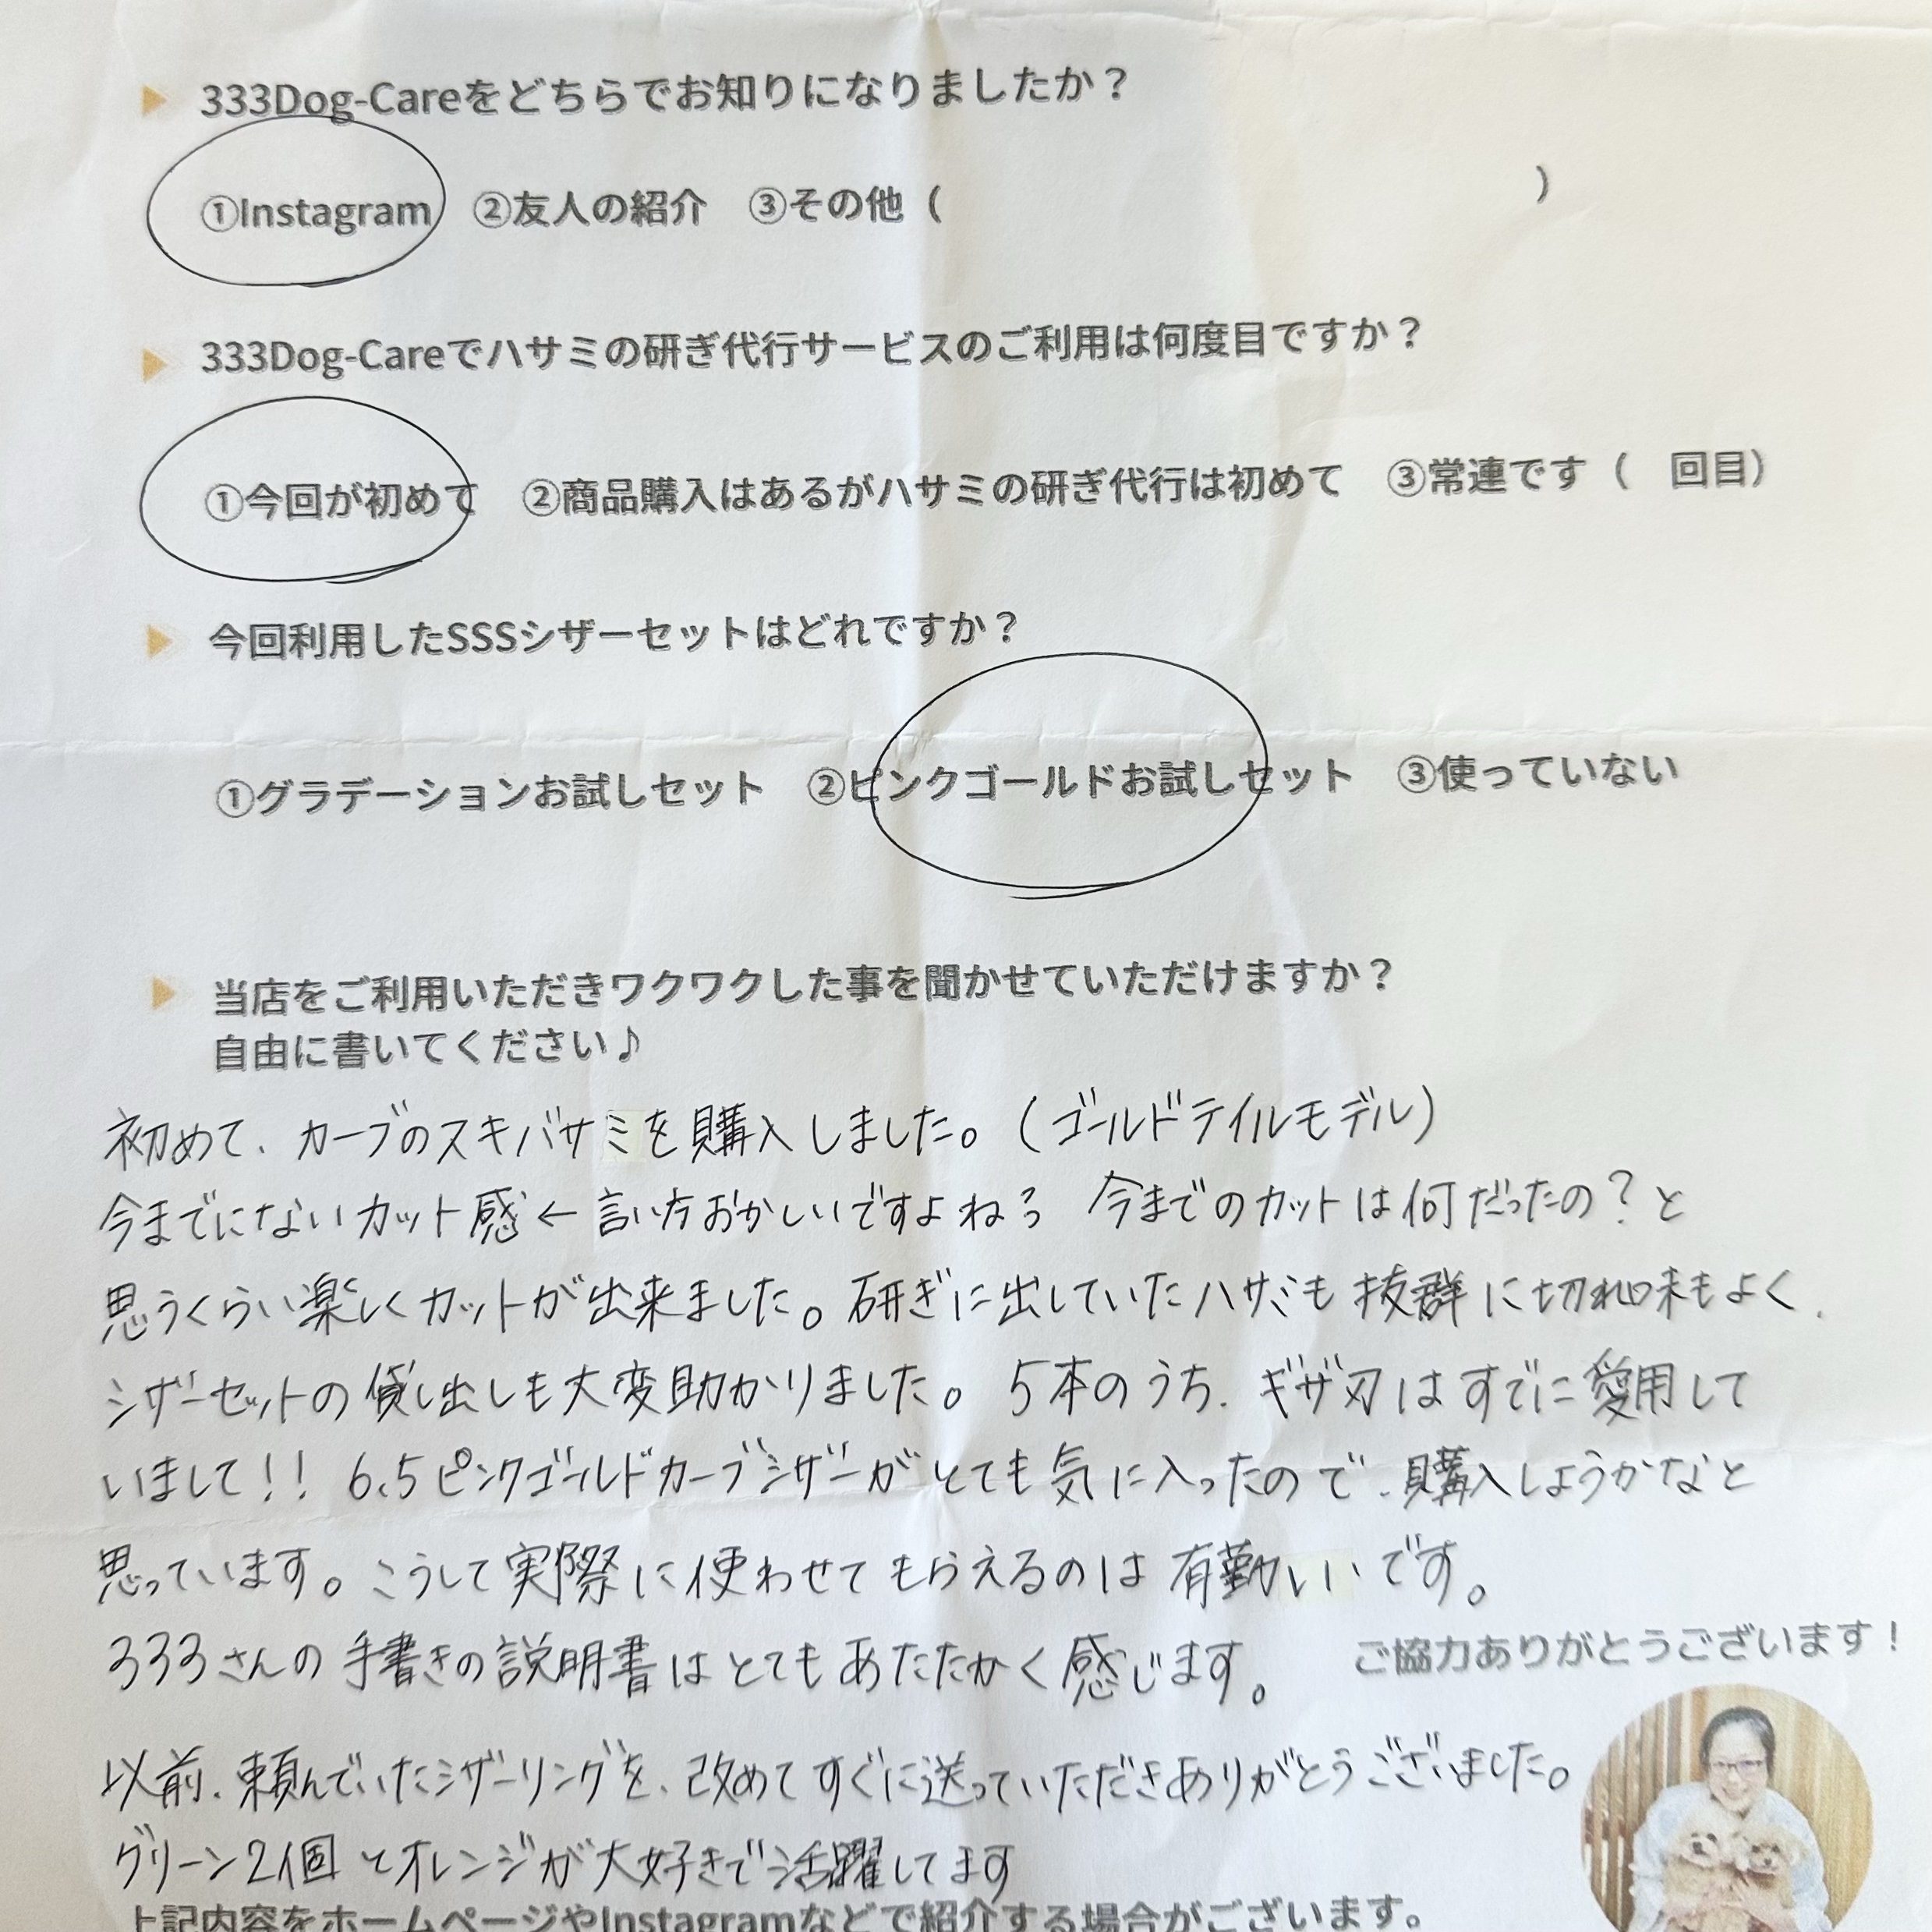 333Dog-Careをどちらでお知りになりましたか？
①Instagram ②友人の紹介 ③その他（ ）
333Dog-Careでハサミの研ぎ代行サービスのご利用は何度目ですか？
①今回が初めて ②商品購入はあるがハサミの研ぎ代行は初めて ③常連です（ 回目）
今回利用したSSSシザーセットはどれですか？
①グラデーションお試しセット ②ピンクゴールドお試しセット ③使っていない
当店をご利用いただきワクワクした事を聞かせていただけますか？
自由に書いてください♪
初めて、カーブのスキバサミを購入しました。（ゴールドテイルモデル）
今までにないカット感←言い方おかしいですよねㇰ 今までのカットは何だったの？と
思うくらい楽しくカットが出来ました。研ぎに出していたハサミも抜群に切れ味もよく、
シザーセットの貸し出しも大変助かりました。5本のうち、ギザ刃はすでに愛用して
いまして！！ 6.5ピンクゴールドカーブシザーがとても気に入ったので、購入しようかなと
思っています。こうして実際に使わせてもらえるのは有難いいです。
333さんの手書きの説明書はとてもあたたかく感じます。
ご協力ありがとうございます！
以前、頼んでいたシザーリングを、改めてすぐに送っていただきありがとうございました。
グリーン2個とオレンジが大好きで活躍してます
上記内容をホームページやInstagramなどで紹介する場合がございます。